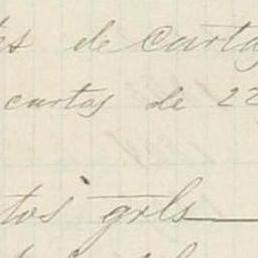 es de Carta
cartas de 22
tos grls